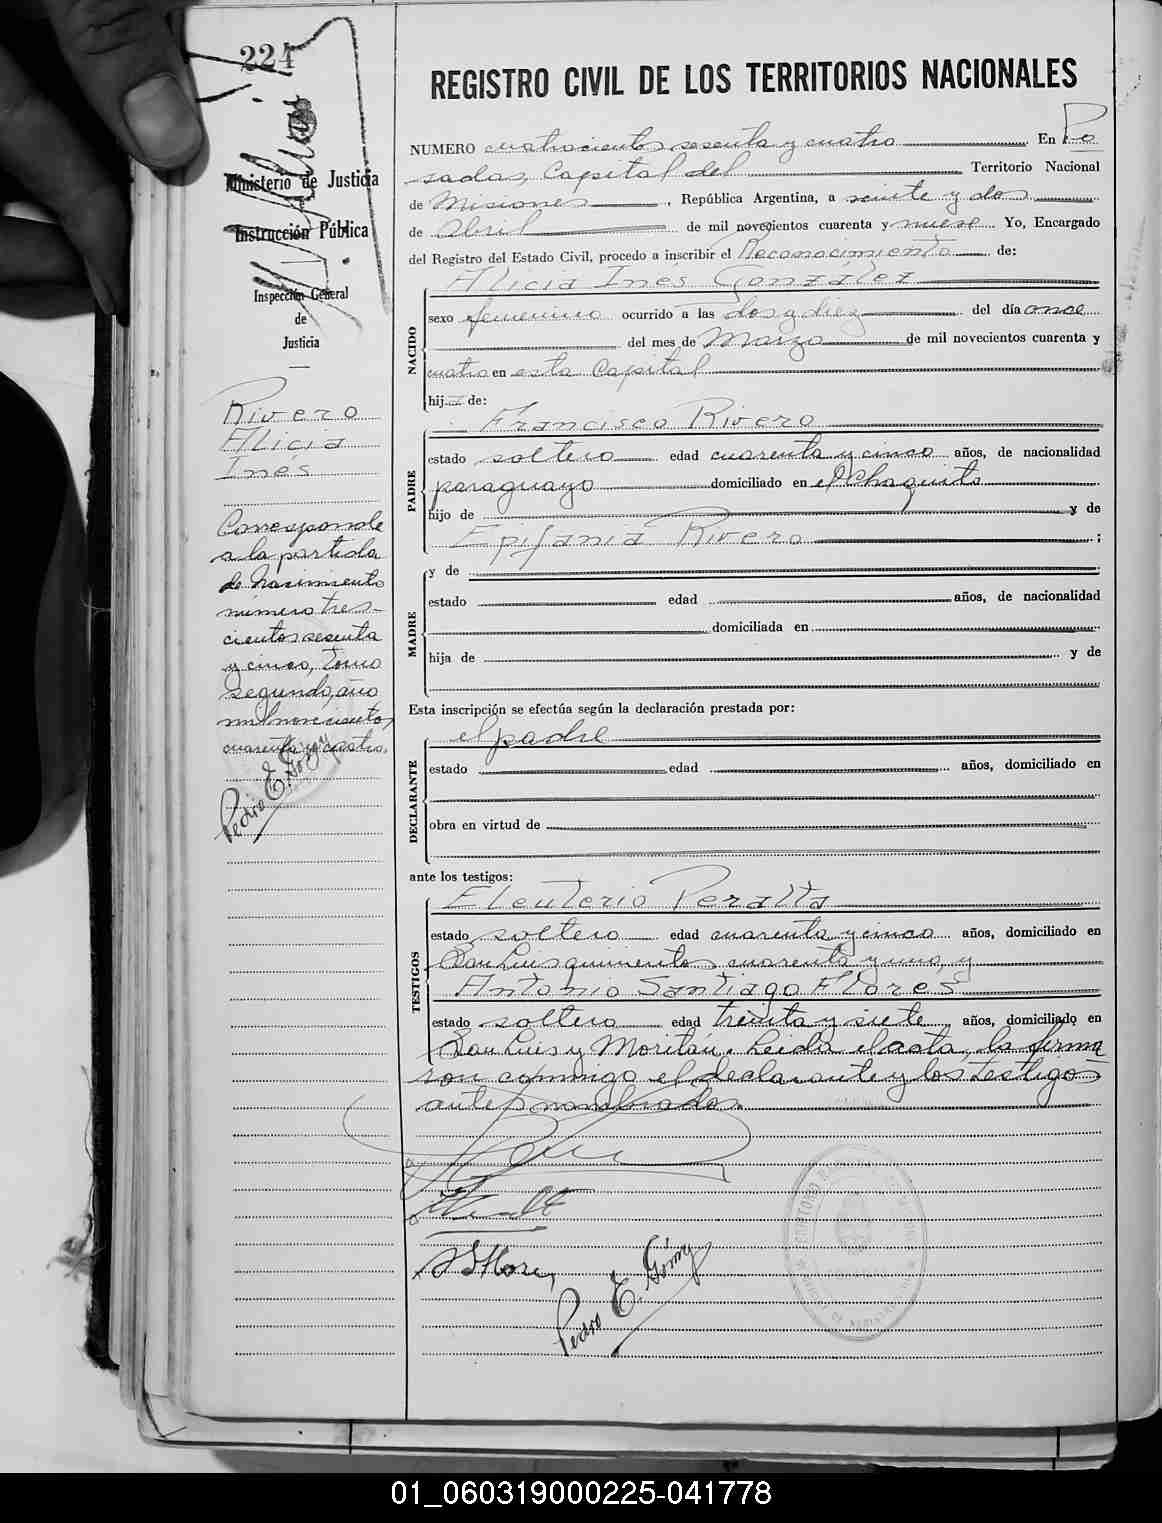 224
Ministerio de Justicia
e
Instrucción Pública
Inspección General
de
Justicia
Rivero
Alicia
Inés
Corresponde
a la partida
de Nacimiento
número tres-
cientos sesenta
y cinco, tomo
segundo, año
mil novecientos
cuarenta y cuatro.
Pedro E. Gómez
REGISTRO CIVIL DE LOS TERRITORIOS NACIONALES
NUMERO cuatrocientos sesenta y cuatro. En Po
sadas, Capital del Territorio Nacional
de Misiones, República Argentina, a veinte y dos
de Abril de mil novecientos cuarenta y nueve. Yo, Encargado
del Registro del Estado Civil, procedo a inscribir el Reconocimiento de:
NACIDO
Alicia Inés González
sexo femenino ocurrido a las dos y diez del día once
del mes de Marzo de mil novecientos cuarenta y
cuatro en esta Capital
hija de:
PADRE
Francisco Rivero
estado soltero edad cuarenta y cinco años, de nacionalidad
paraguayo domiciliado en el Chaquito
hijo de y de
Epifania Rivero ;
MADRE
y de
estado edad años, de nacionalidad
domiciliada en
hija de y de
Esta inscripción se efectúa según la declaración prestada por:
DECLARANTE
el padre
estado edad años, domiciliado en
obra en virtud de
ante los testigos:
TESTIGOS
Eleuterio Peralta
estado soltero edad cuarenta y cinco años, domiciliado en
San Luis quinientos cuarenta y uno, y
Antonio Santiago Flores
estado soltero edad treinta y siete años, domiciliado en
San Luis y Moritán. Leida el acta, la firma
ron conmigo el declarante y los testigos
antes nombrados.
Pedro E. Gómez
01_060319000225-041778